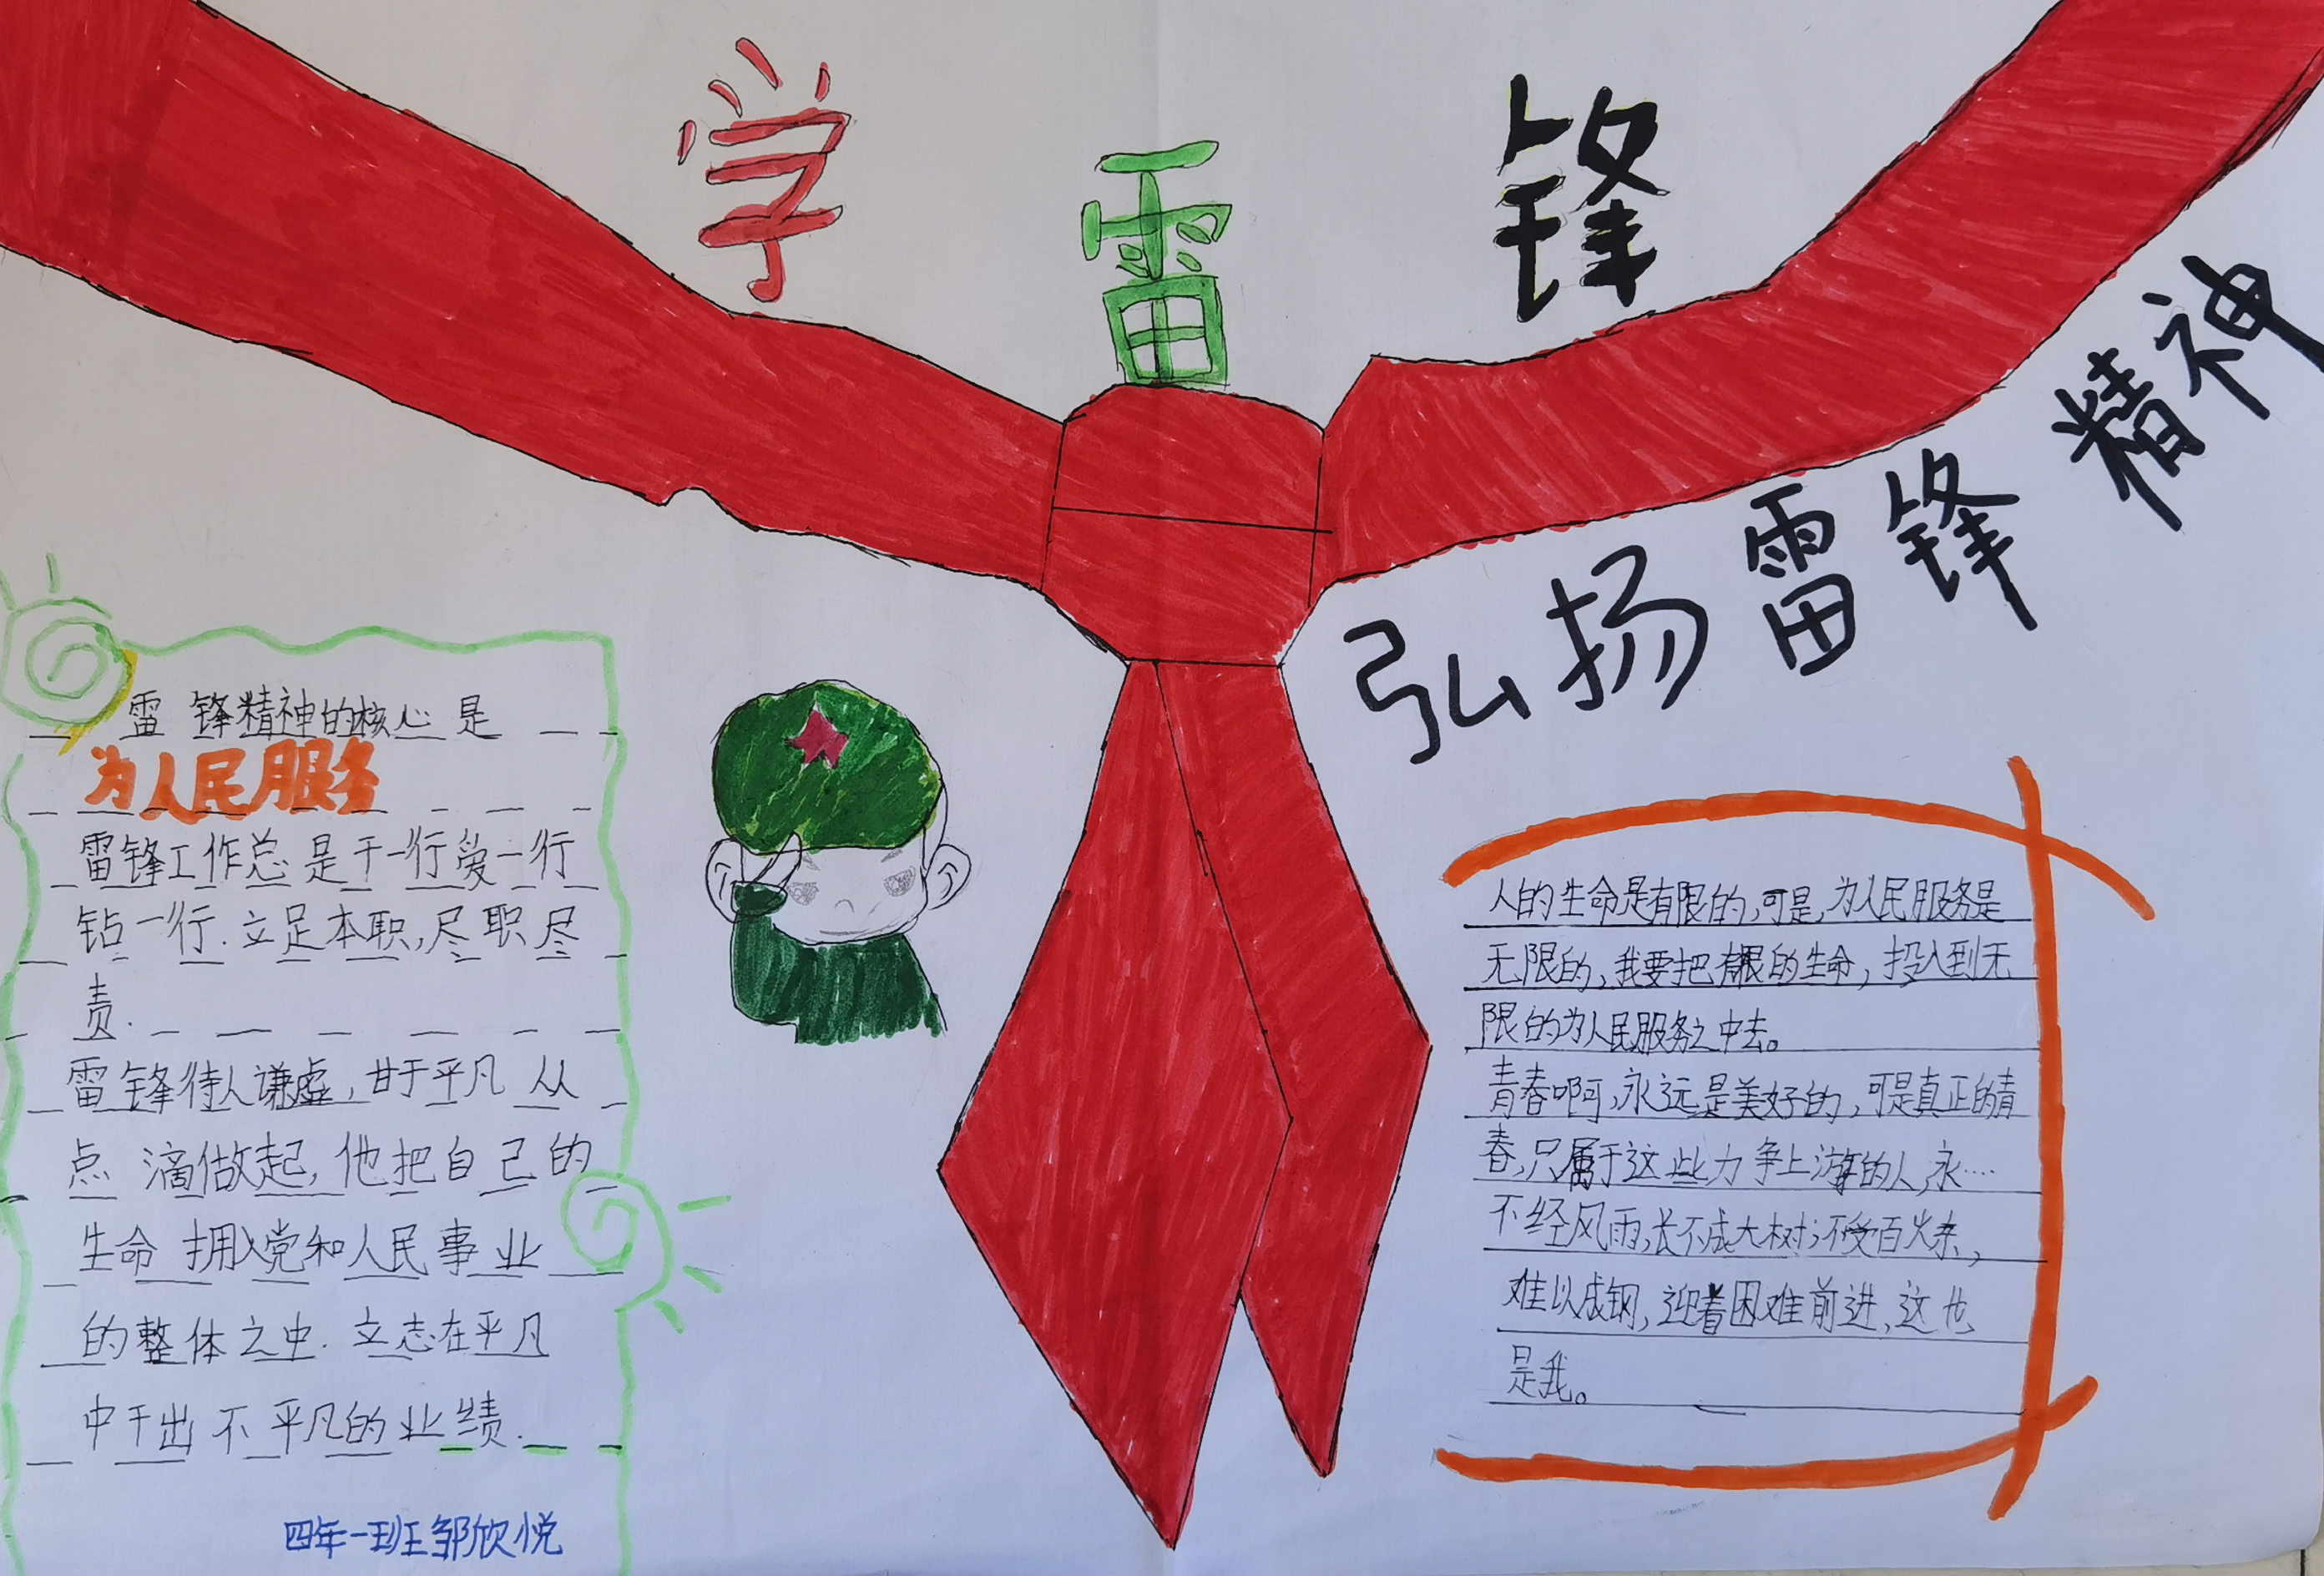 学雷锋
弘扬雷锋精神
雷锋精神的核心是
为人民服务
雷锋工作总是干一行爱一行
钻一行.立足本职,尽职尽
责.
雷锋待人谦虚,甘于平凡从
点滴做起,他把自己的
生命拥入党和人民事业
的整体之中.立志在平凡
中干出不平凡的业绩.
四年一班邹欣悦
人的生命是有限的,可是,为人民服务是
无限的,我要把有限的生命,投入到无
限的为人民服务之中去。
青春啊,永远是美好的,可是真正的青
春,只属于这些力争上游的人,永……
不经风雨,长不成大树;不受百火杰,
难以成钢,迎着困难前进,这也
是我。